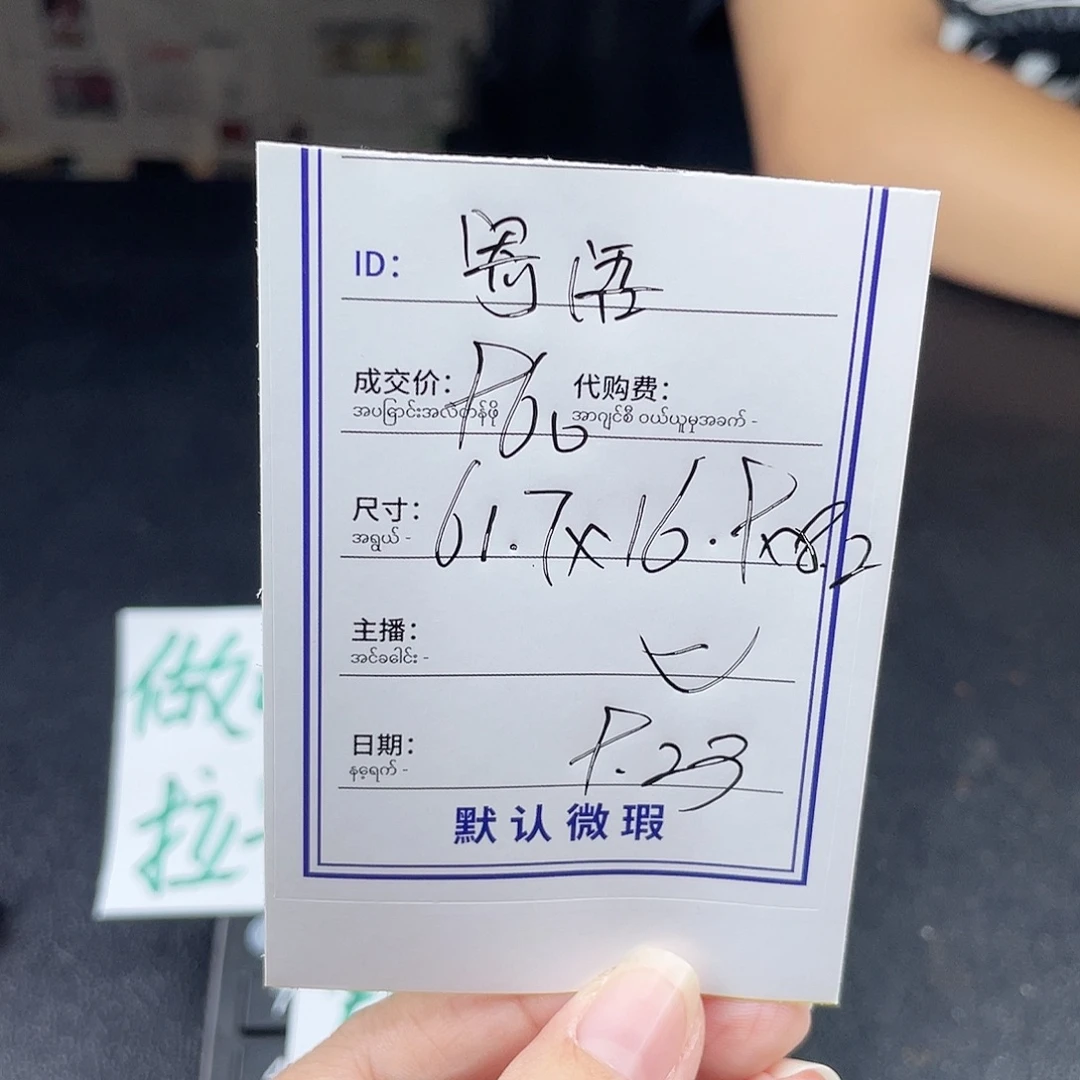 ID: 粤语
成交价: 960 代购费:
အပြောင်းအလဲတန်ဖိုး အာဂျင်စီ ဝယ်ယူမှုအခက် -
尺寸: 61.7x16.9x8.2
အရွယ် -
主播:
အင်ခေါင်း -
日期: 9.23
နေ့ရက် -
默认微瑕
做
拉